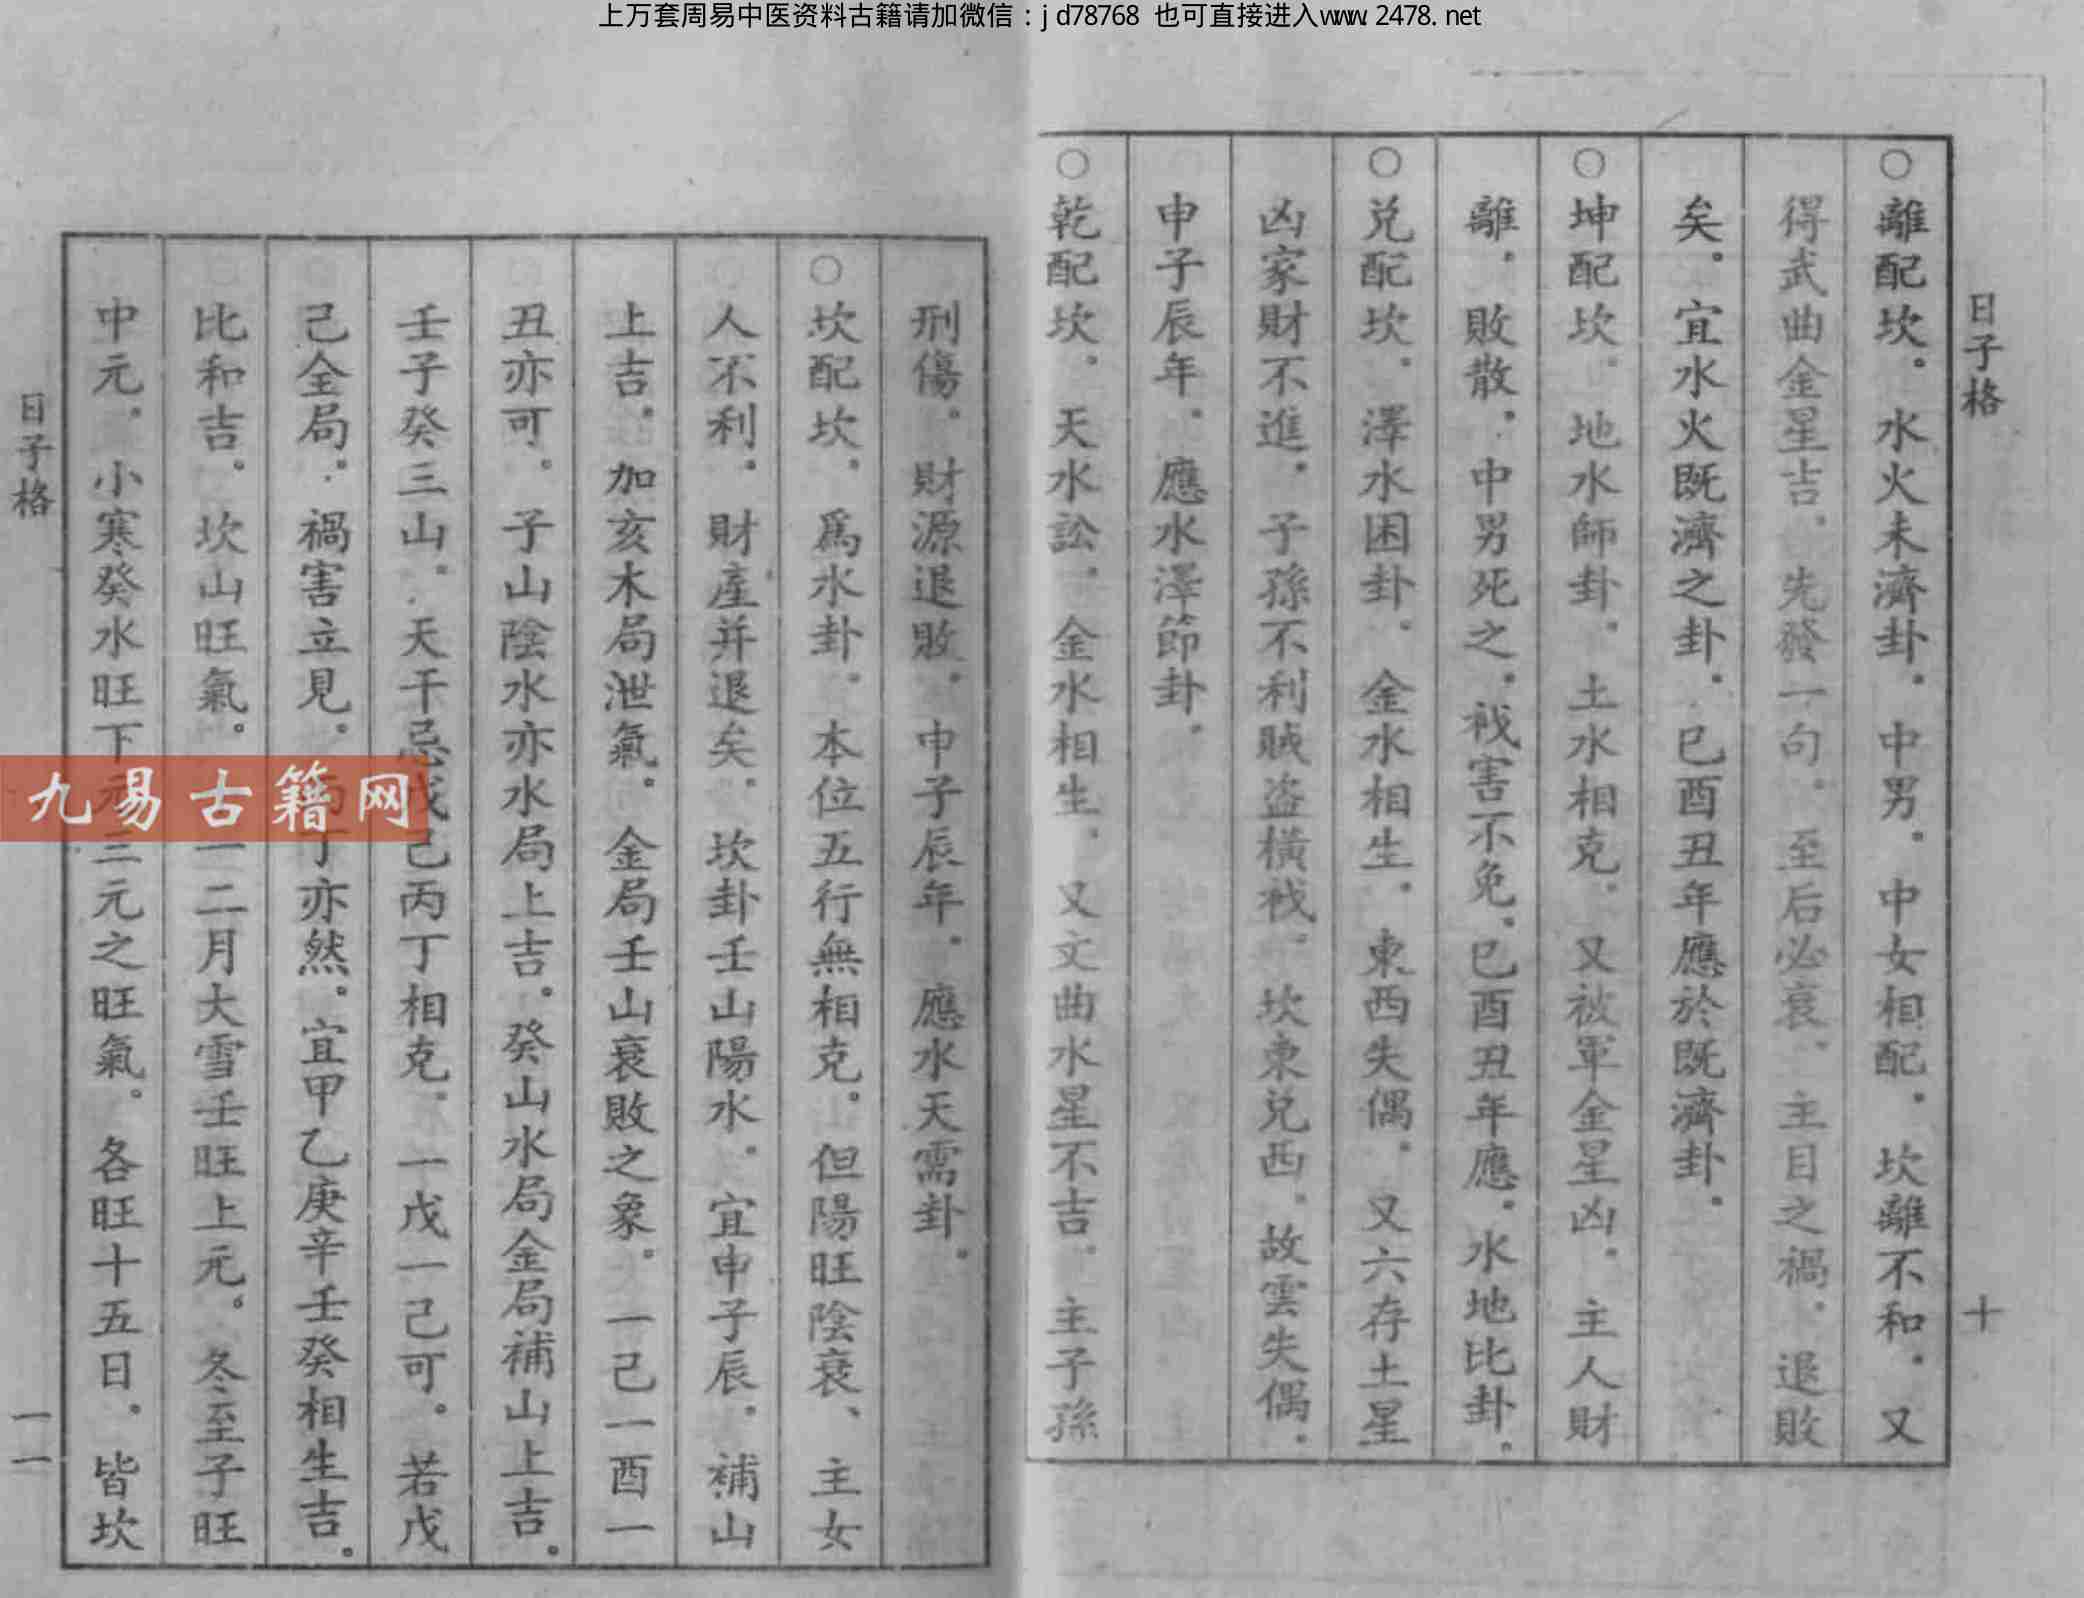 上万套周易中医资料古籍请加微信：jd78768 也可直接进入www.2478.net
日子格
十
○離配坎。水火未濟卦。中男。中女相配。坎離不和。又
得武曲金星吉。先發一句。至后必衰。主目之禍。退敗
矣。宜水火既濟之卦。巳酉丑年應於既濟卦。
○坤配坎。地水師卦。土水相克。又被軍金星凶。主人財
離。敗散。中男死之。戕害不免。巳酉丑年應。水地比卦。
○兑配坎。澤水困卦。金水相生。東西失偶。又六存土星
凶家財不進。子孫不利賊盗橫戕。坎東兑西。故雲失偶。
申子辰年。應水澤節卦。
○乾配坎。天水訟。金水相生。又文曲水星不吉。主子孫
刑傷。財源退敗。申子辰年。應水天需卦。
○坎配坎。爲水卦。本位五行無相克。但陽旺陰衰、主女
人不利。財產并退矣。坎卦壬山陽水。宜申子辰。補山
上吉。加亥木局泄氣。金局壬山衰敗之象。一己一酉一
丑亦可。子山陰水亦水局上吉。癸山水局金局補山上吉。
壬子癸三山。天干忌戊己丙丁相克。一戊一己可。若戊
己全局。禍害立見。丁亦然。宜甲乙庚辛壬癸相生吉。
比和吉。坎山旺氣。二月大雪壬旺上元。冬至子旺
中元。小寒癸水旺下元三元之旺氣。各旺十五日。皆坎
日子格
一一
九易古籍网